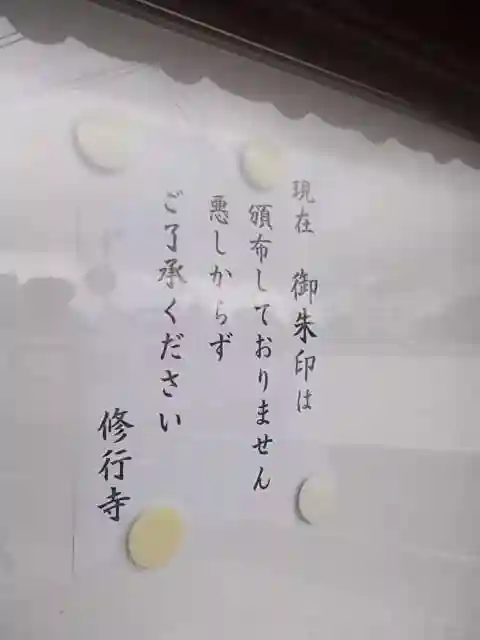 現在　御朱印は
頒布しておりません
悪しからず
ご了承ください
修行寺